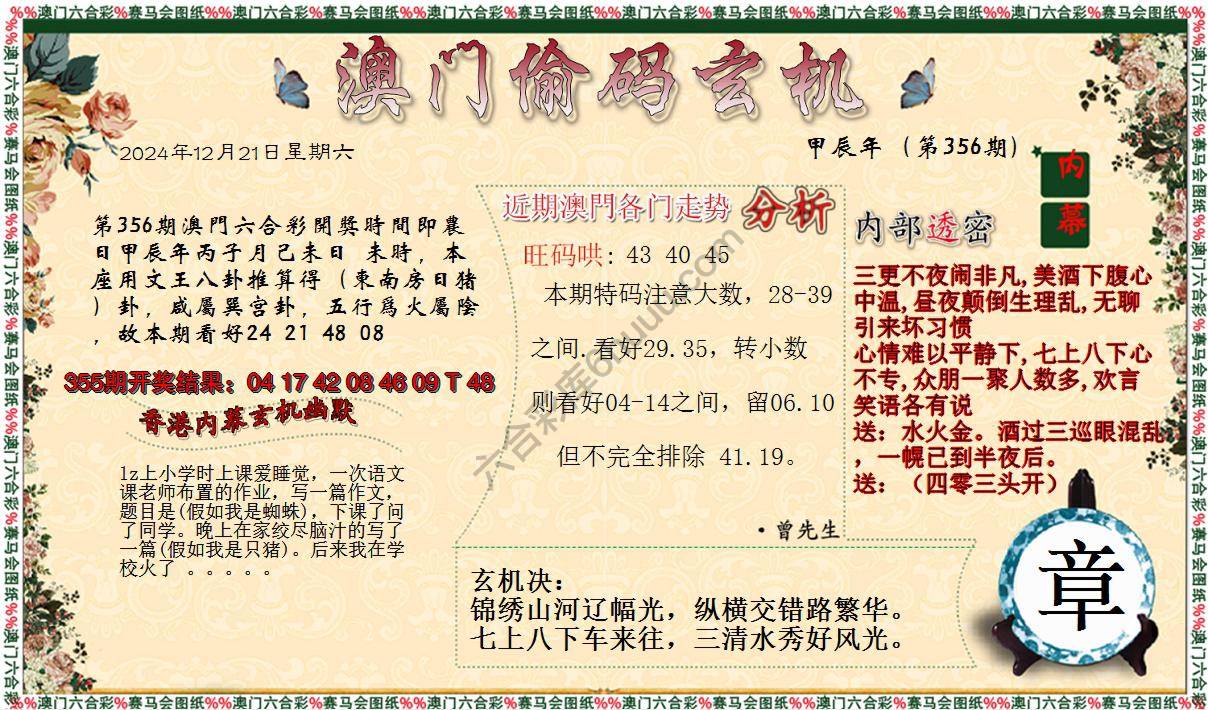 %%澳门六合彩%赛马会图纸%%澳门六合彩%赛马会图纸%%澳门六合彩%赛马会图纸%%澳门六合彩%赛马会图纸%%澳门六合彩%赛马会图纸%%澳门六合彩%赛马会图纸%%
澳门偷码玄机
2024年12月21日星期六
甲辰年（第356期）
内幕
第356期澳門六合彩開獎時間即農
日甲辰年丙子月己未日 未時，本
座用文王八卦推算得（東南房日猪
）卦，咸屬巽宫卦，五行爲火屬陰
，故本期看好24 21 48 08
355期开奖结果：04 17 42 08 46 09 T 48
香港内幕玄机幽默
lz上小学时上课爱睡觉，一次语文
课老师布置的作业，写一篇作文，
题目是(假如我是蜘蛛)，下课了问
了同学。晚上在家绞尽脑汁的写了
一篇(假如我是只猪)。后来我在学
校火了 。。。。。
近期澳門各门走势 分析
旺码哄: 43 40 45
本期特码注意大数，28-39
之间.看好29.35，转小数
则看好04-14之间，留06.10
但不完全排除 41.19。
·曾先生
内部透密
三更不夜闹非凡,美酒下腹心
中温,昼夜颠倒生理乱,无聊
引来坏习惯
心情难以平静下,七上八下心
不专,众朋一聚人数多,欢言
笑语各有说
送：水火金。酒过三巡眼混乱
，一幌已到半夜后。
送：（四零三头开）
玄机决：
锦绣山河辽幅光，纵横交错路繁华。
七上八下车来往，三清水秀好风光。
章